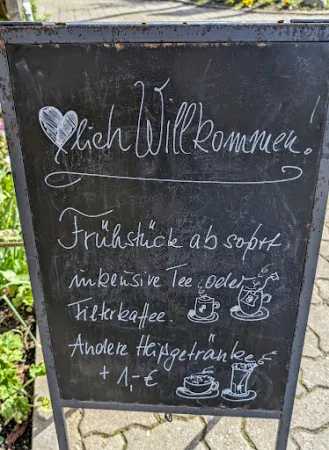 ♥lich Willkommen!
Frühstück ab sofort
inklusive Tee oder
Filterkaffee.
Andere Heißgetränke
+ 1,-€